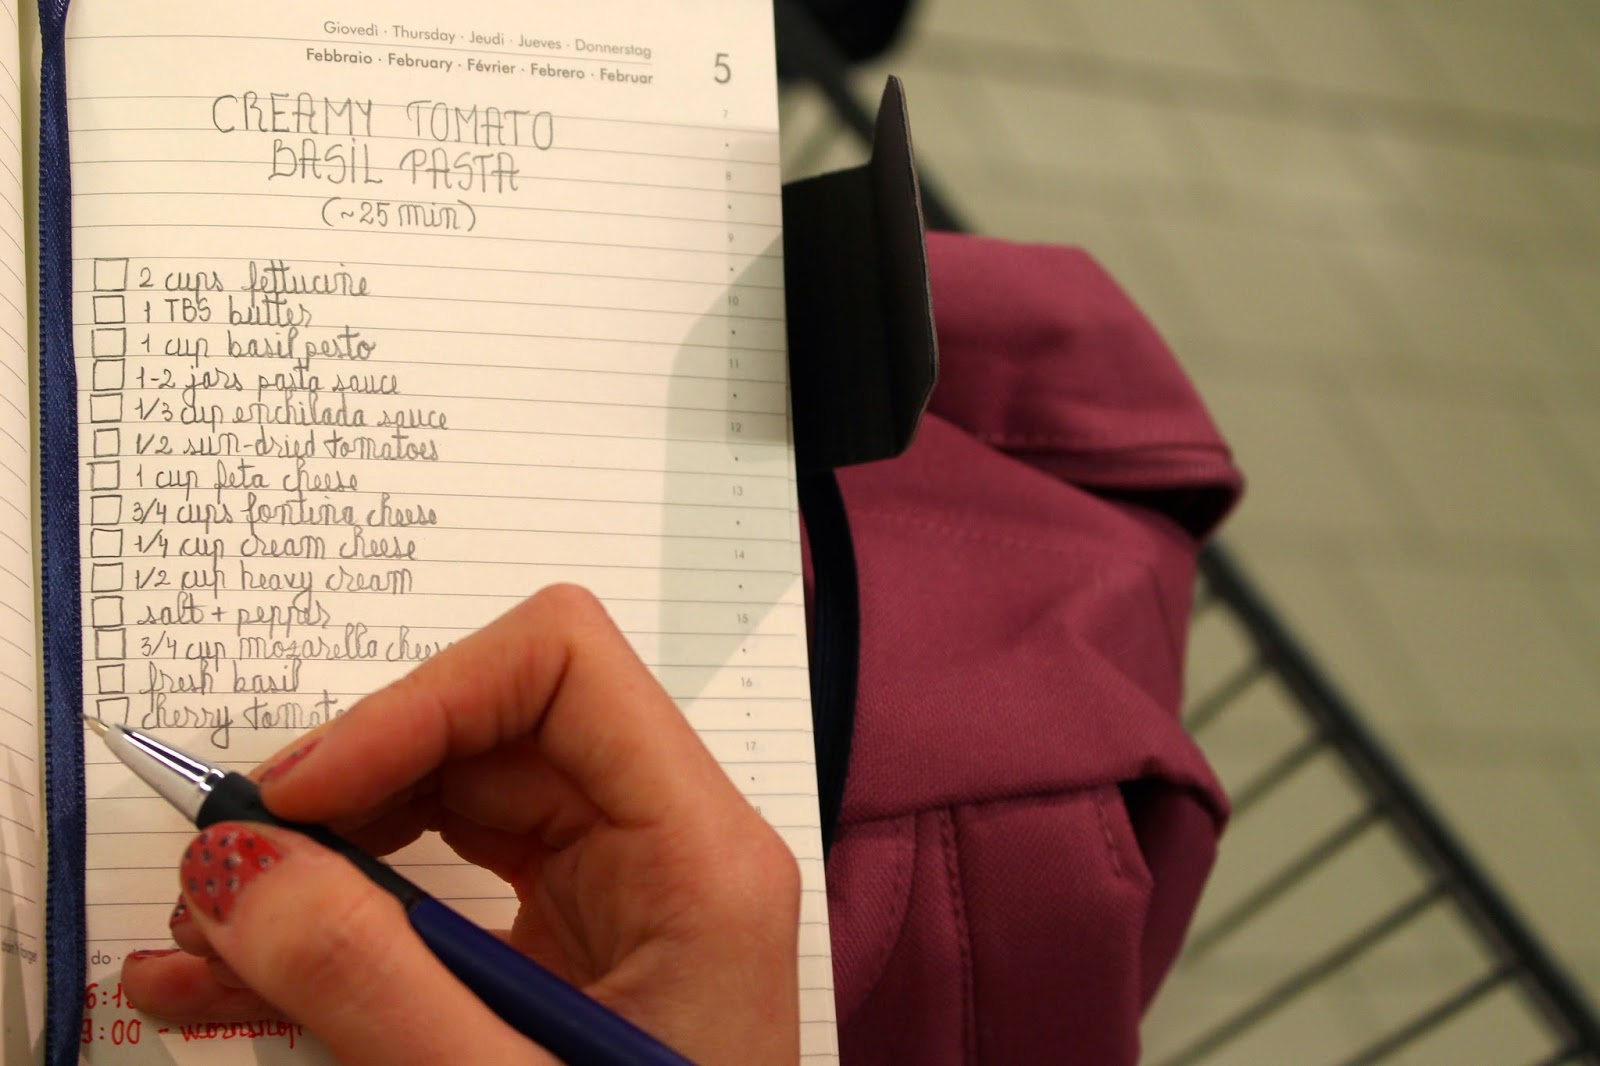 Giovedì · Thursday · Jeudi · Jueves · Donnerstag
Febbraio · February · Février · Febrero · Februar
5
CREAMY TOMATO
BASIL PASTA
(~25 min)
7
8
9
10
11
12
13
14
15
16
17
2 cups fettucine
1 TBS butter
1 cup basil pesto
1-2 jars pasta sauce
1/3 cup enchilada sauce
1/2 sun-dried tomatoes
1 cup feta cheese
3/4 cups fontina cheese
1/4 cup cream cheese
1/2 cup heavy cream
salt + pepper
3/4 cup mozarella
fresh basil
cherry
do ·
9:00 - workshop